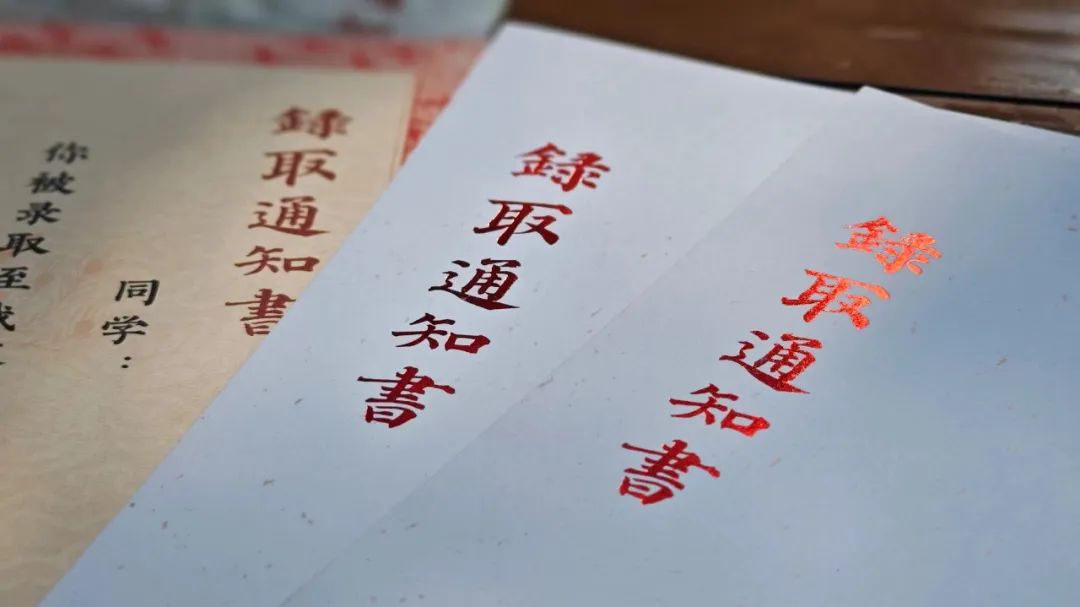 錄取通知書
同学：
你被录取至我
錄取通知書
錄取通知書